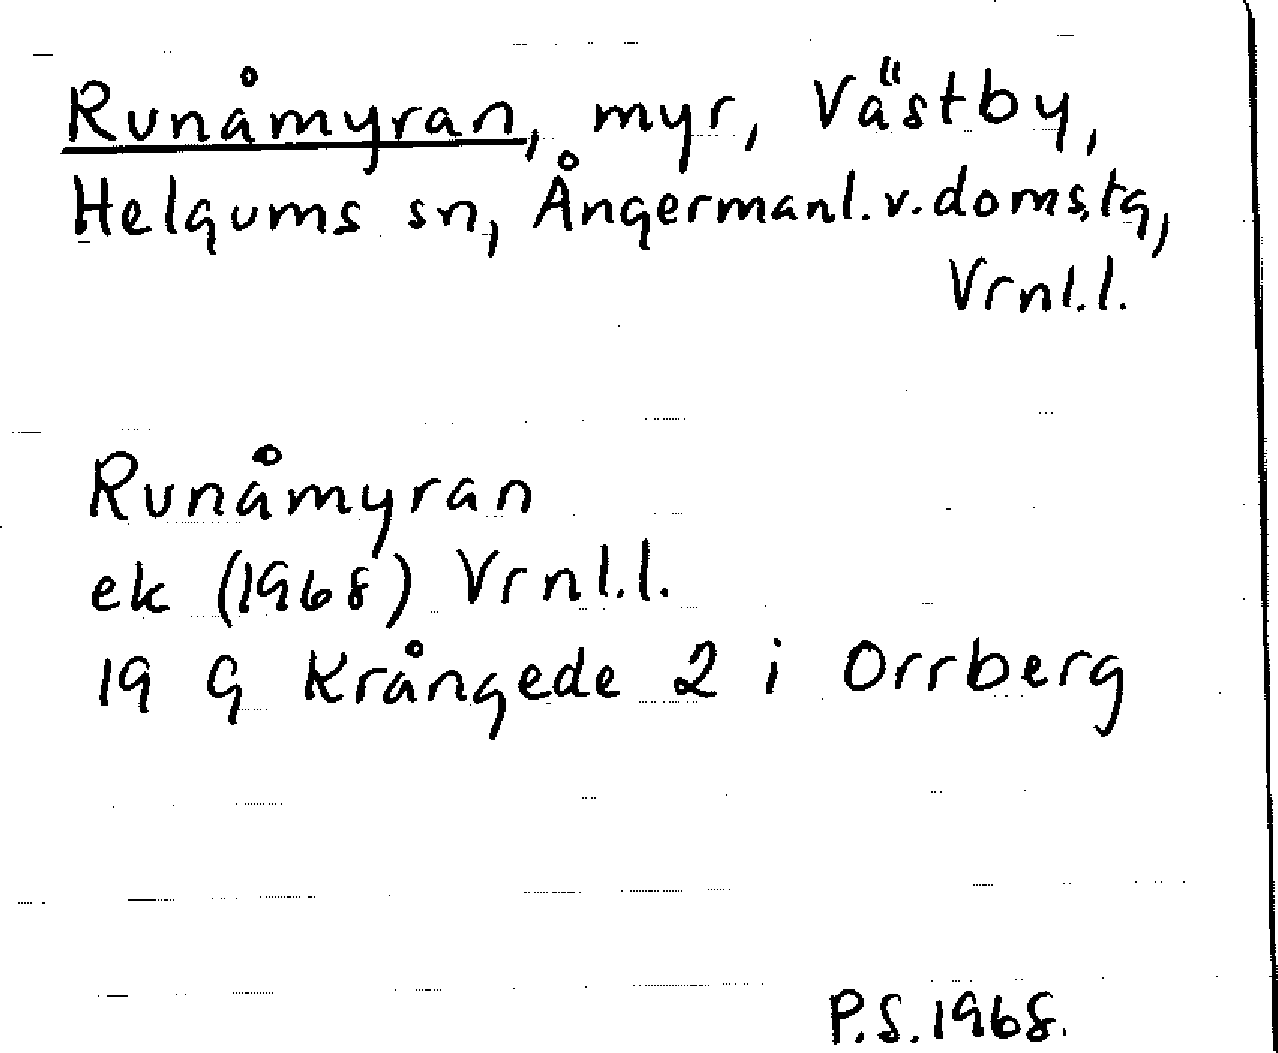 Runåmyran, myr, Västby,
Helgums sn, Ångermanl. v. doms,tg,
Vrnl.l.
Runåmyran
ek (1968) Vrnl.l.
19 G Krångede 2 i Orrberg
P.S. 1968.